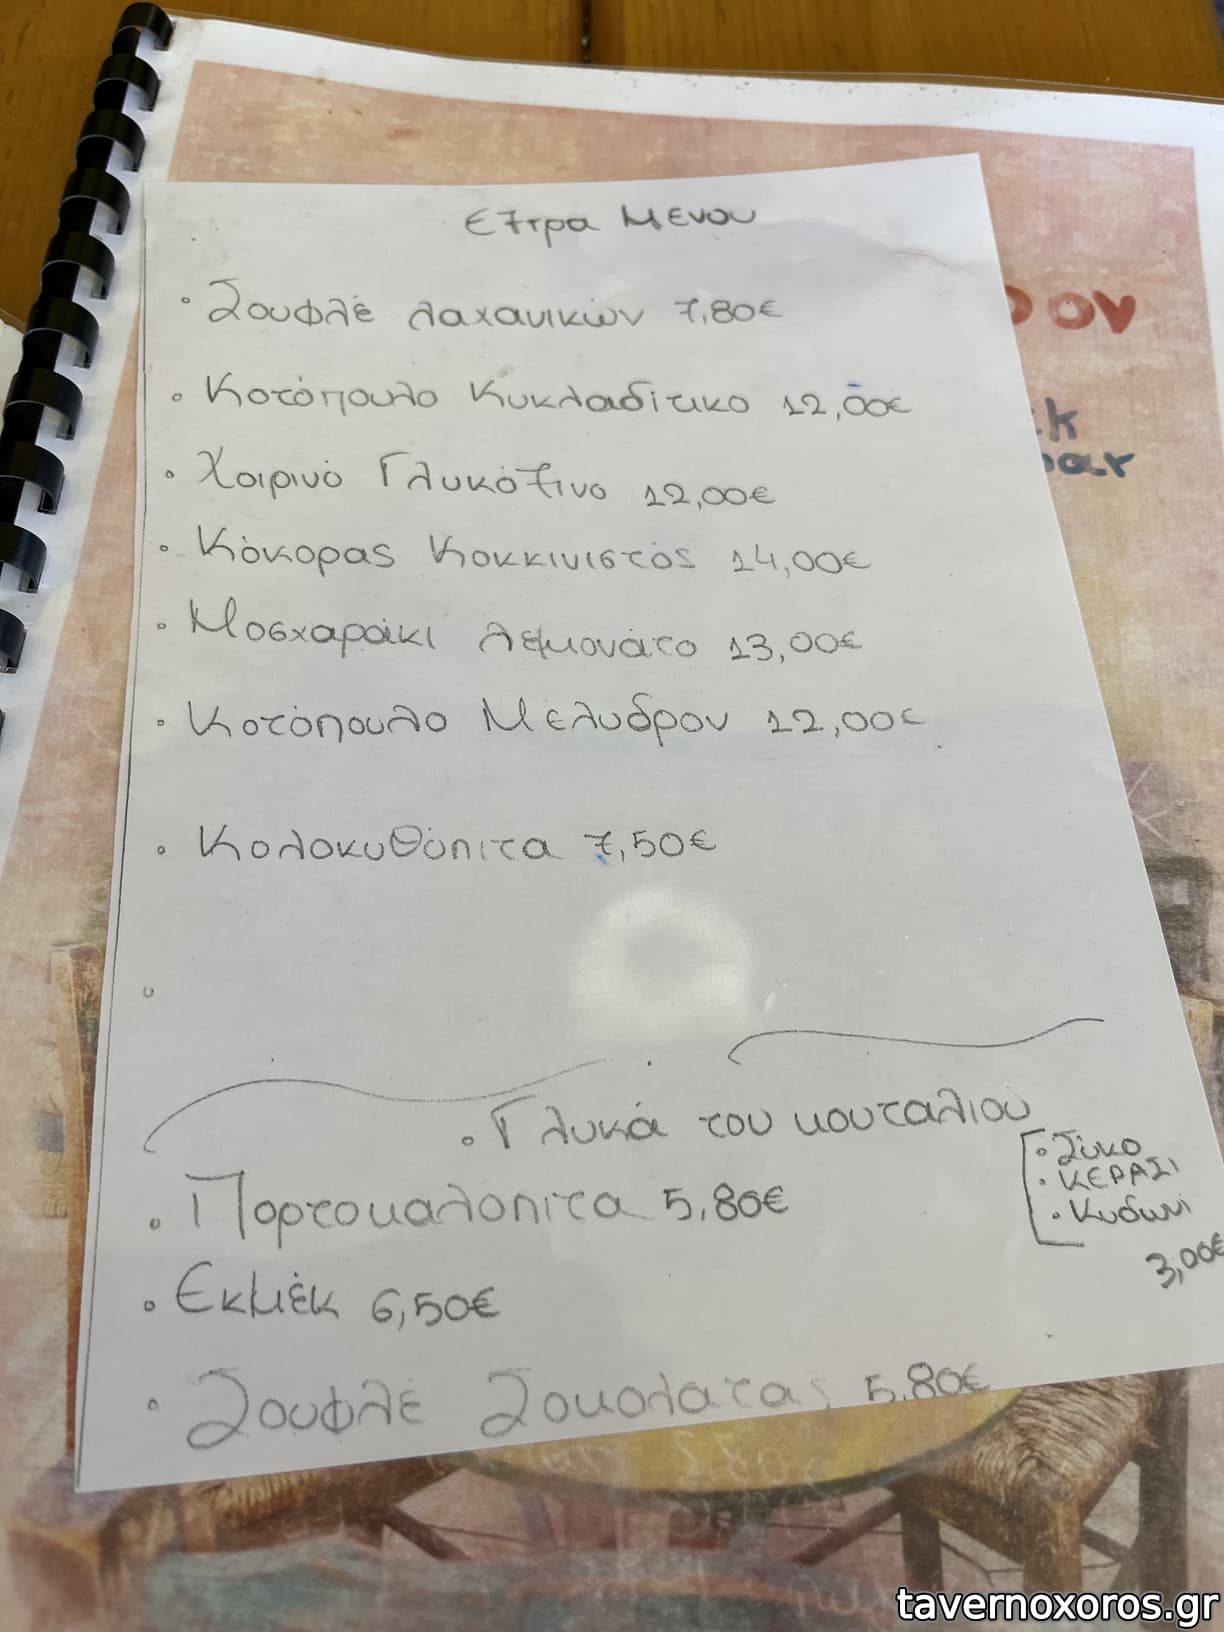 Εξτρα Μενου
• Σουφλέ λαχανικών 7,80€
• Κοτόπουλο Κυκλαδίτικο 12,00€
• Χοιρινό Γλυκόξινο 12,00€
• Κόκορας Κοκκινιστός 14,00€
• Μοσχαράκι λεμονάτο 13,00€
• Κοτόπουλο Μέλυδρον 12,00€
• Κολοκυθόπιτα 7,50€
• Γλυκά του κουταλιού
• Σύκο
• ΚΕΡΑΣΙ
• Κυδώνι
3,00€
• Πορτοκαλόπιτα 5,80€
• Εκμέκ 6,50€
• Σουφλέ Σοκολάτας 5,80€
ον
tavernoxoros.gr